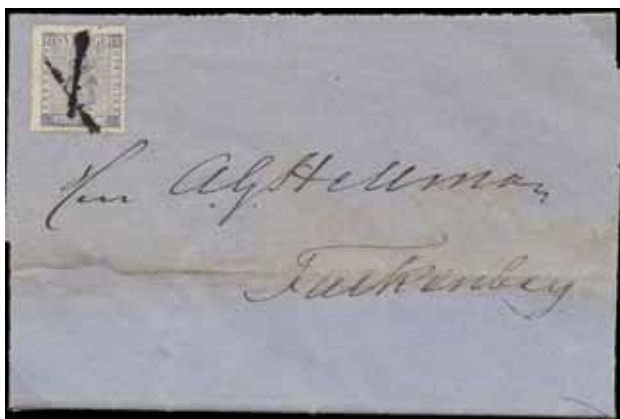 Herr A.G. Hellman
Falkenberg